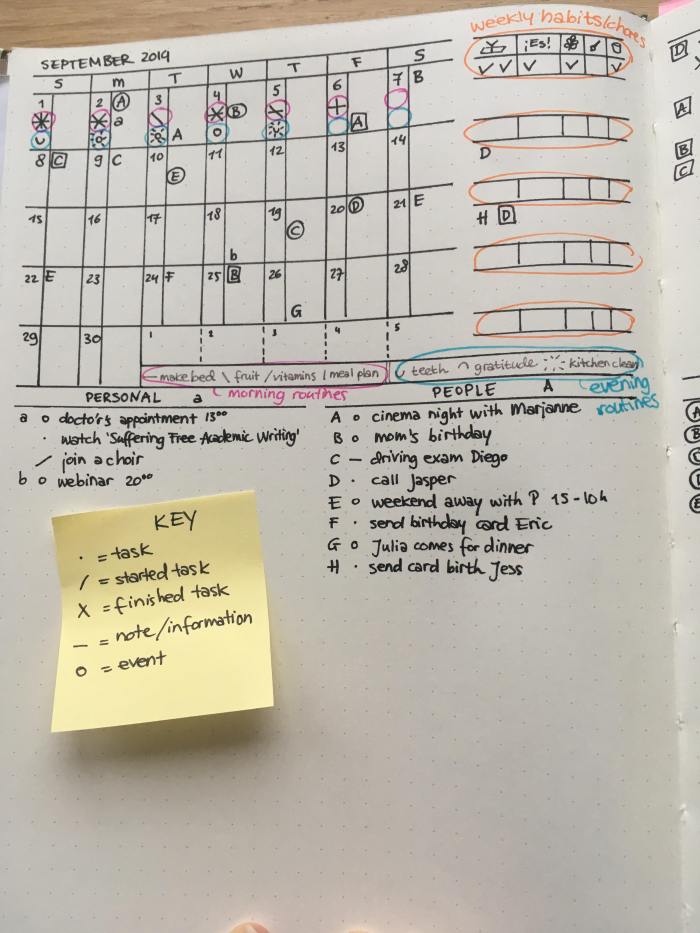 weekly habits/chores
SEPTEMBER 2019
S M T W T F S
¡Es!
1 2 A 3 4 5 6 7 B
a B
A A
8 C 9 C 10 11 12 13 14
E
D
15 16 17 18 19 20 D 21 E
C
H D
b
22 E 23 24 F 25 B 26 27 28
G
29 30 1 2 3 4 5
— make bed \ fruit / vitamins | meal plan
teeth ⌒ gratitude kitchen clean
morning routines
evening routines
PERSONAL a
a o doctor's appointment 13⁰⁰
· watch 'Suffering Free Academic Writing'
/ join a choir
b o webinar 20⁰⁰
PEOPLE A
A o cinema night with Marjanne
B o mom's birthday
C — driving exam Diego
D · call Jasper
E o weekend away with P 15-10h
F · send birthday card Eric
G o Julia comes for dinner
H · send card birth Jess
KEY
· = task
/ = started task
X = finished task
— = note/information
o = event
D
A
B
C
A
B